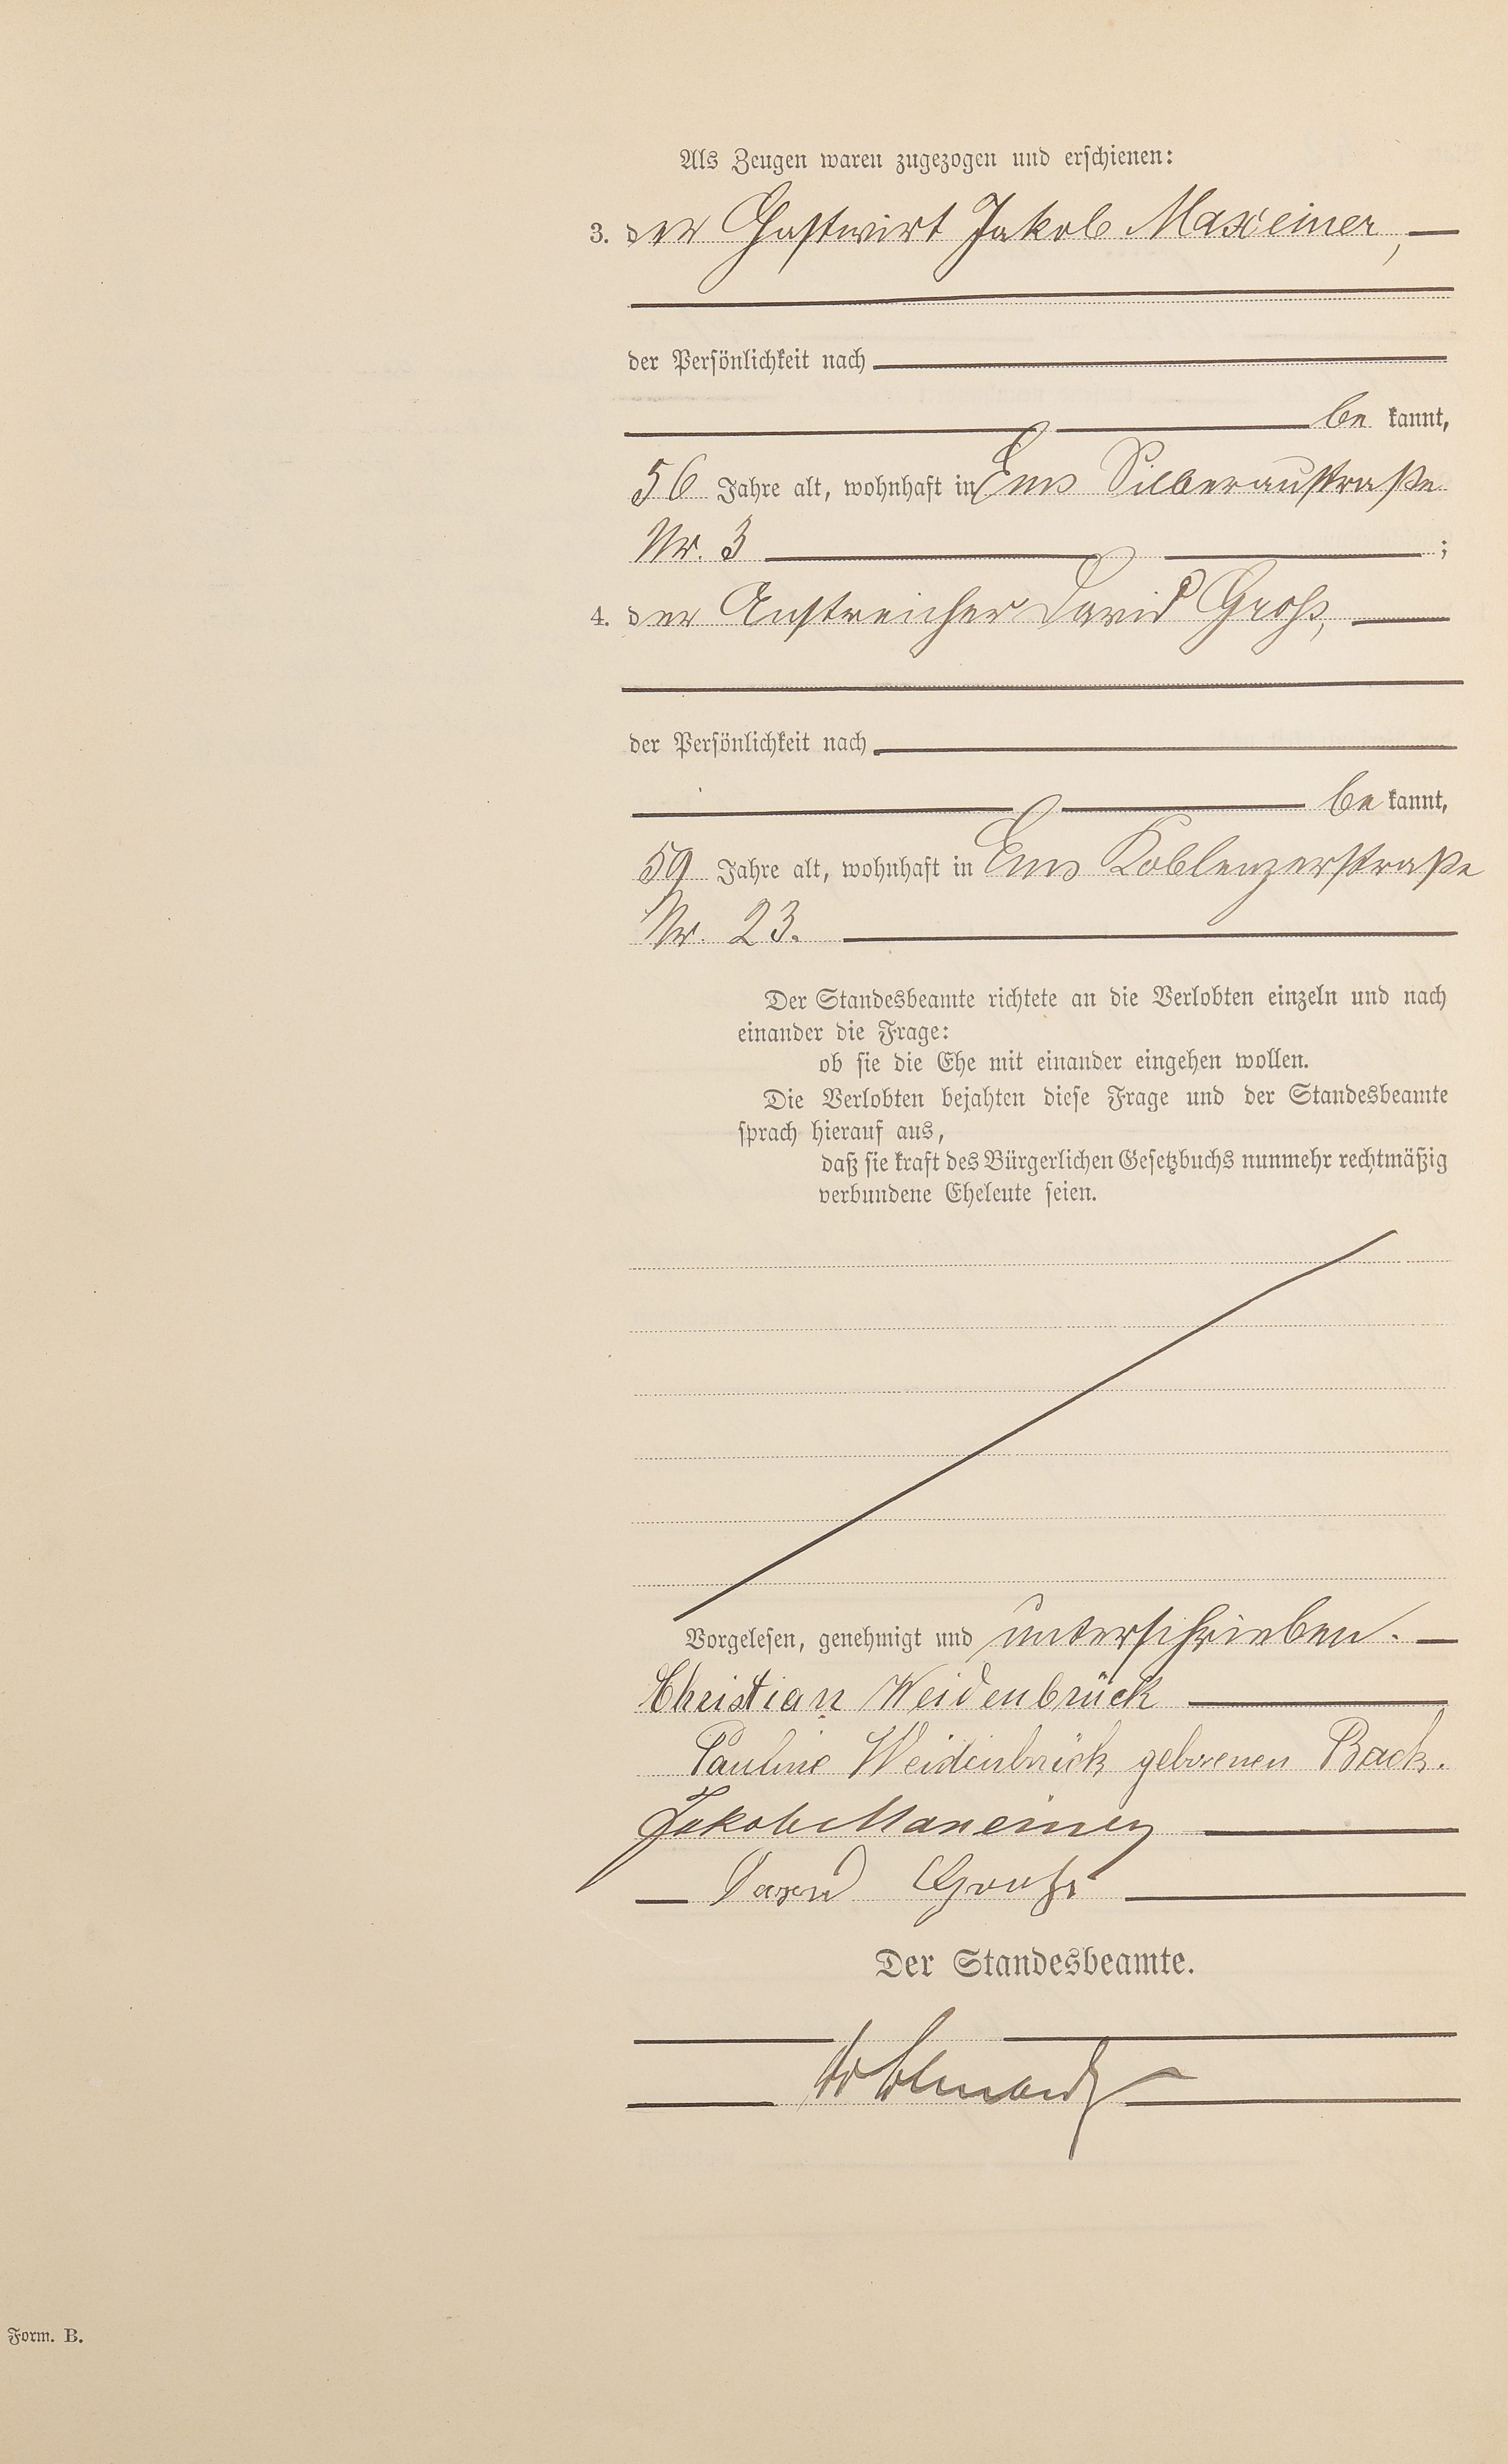 Als Zeugen waren zugezogen und erschienen:
3. der Gastwirt Jakob Maxeiner,
der Persönlichkeit nach
be kannt,
56 Jahre alt, wohnhaft in Ems Silberaustraße
Nr. 3 ;
4. der Anstreicher David Groß,
der Persönlichkeit nach
be kannt,
59 Jahre alt, wohnhaft in Ems Koblenzerstraße
Nr. 23.
Der Standesbeamte richtete an die Verlobten einzeln und nach
einander die Frage:
ob sie die Ehe mit einander eingehen wollen.
Die Verlobten bejahten diese Frage und der Standesbeamte
sprach hierauf aus,
daß sie kraft des Bürgerlichen Gesetzbuchs nunmehr rechtmäßig
verbundene Eheleute seien.
Vorgelesen, genehmigt und unterschrieben.
Christian Weidenbrück
Pauline Weidenbrück geborenen Back.
Jakob Maxeiner
David Groß
Der Standesbeamte.
Form. B.